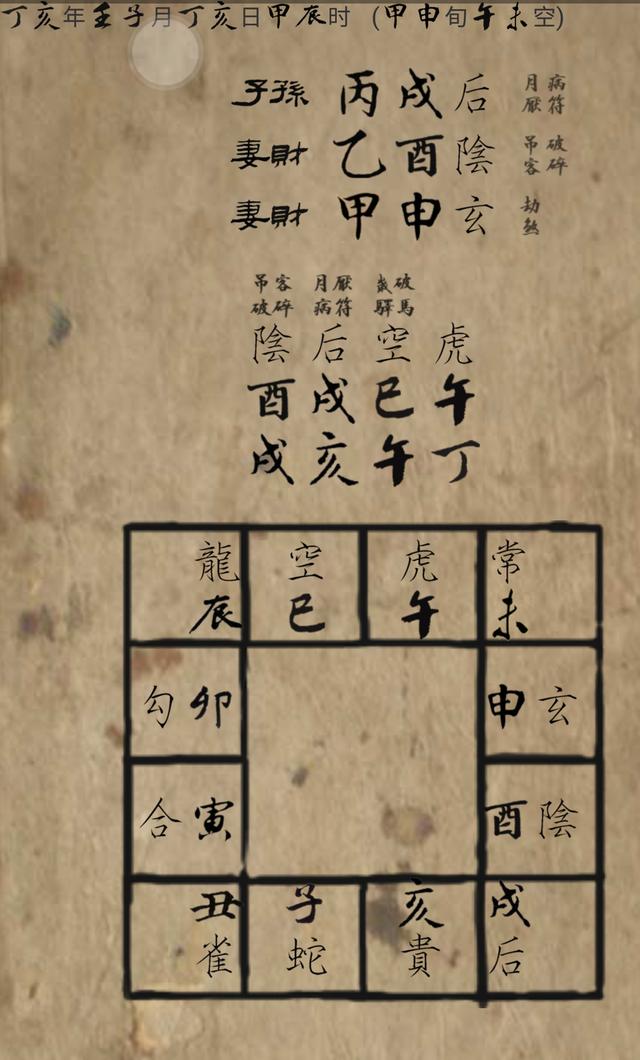 丁亥年壬子月丁亥日甲辰时 (甲申旬午未空)
子孫 丙戌后 月厭 病符
妻財 乙酉陰 吊客 破碎
妻財 甲申玄 劫煞
吊客 月厭 歲破
破碎 病符 驛馬
陰后空虎
酉戌巳午
戌亥午丁
龍空虎常
辰巳午未
勾卯 申玄
合寅 酉陰
丑子亥戌
雀蛇貴后